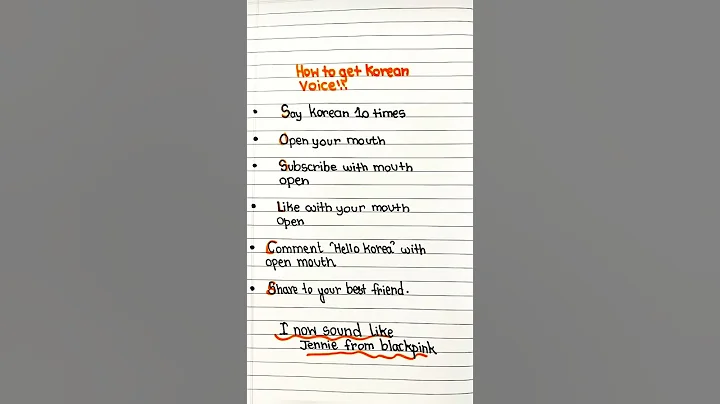 How to get Korean
Voice!!
• Say Korean 10 times
• Open your mouth
• Subscribe with mouth
open
• Like with your mouth
open
• Comment "Hello Korea" with
open mouth.
• Share to your best friend.
I now sound like
Jennie from blackpink